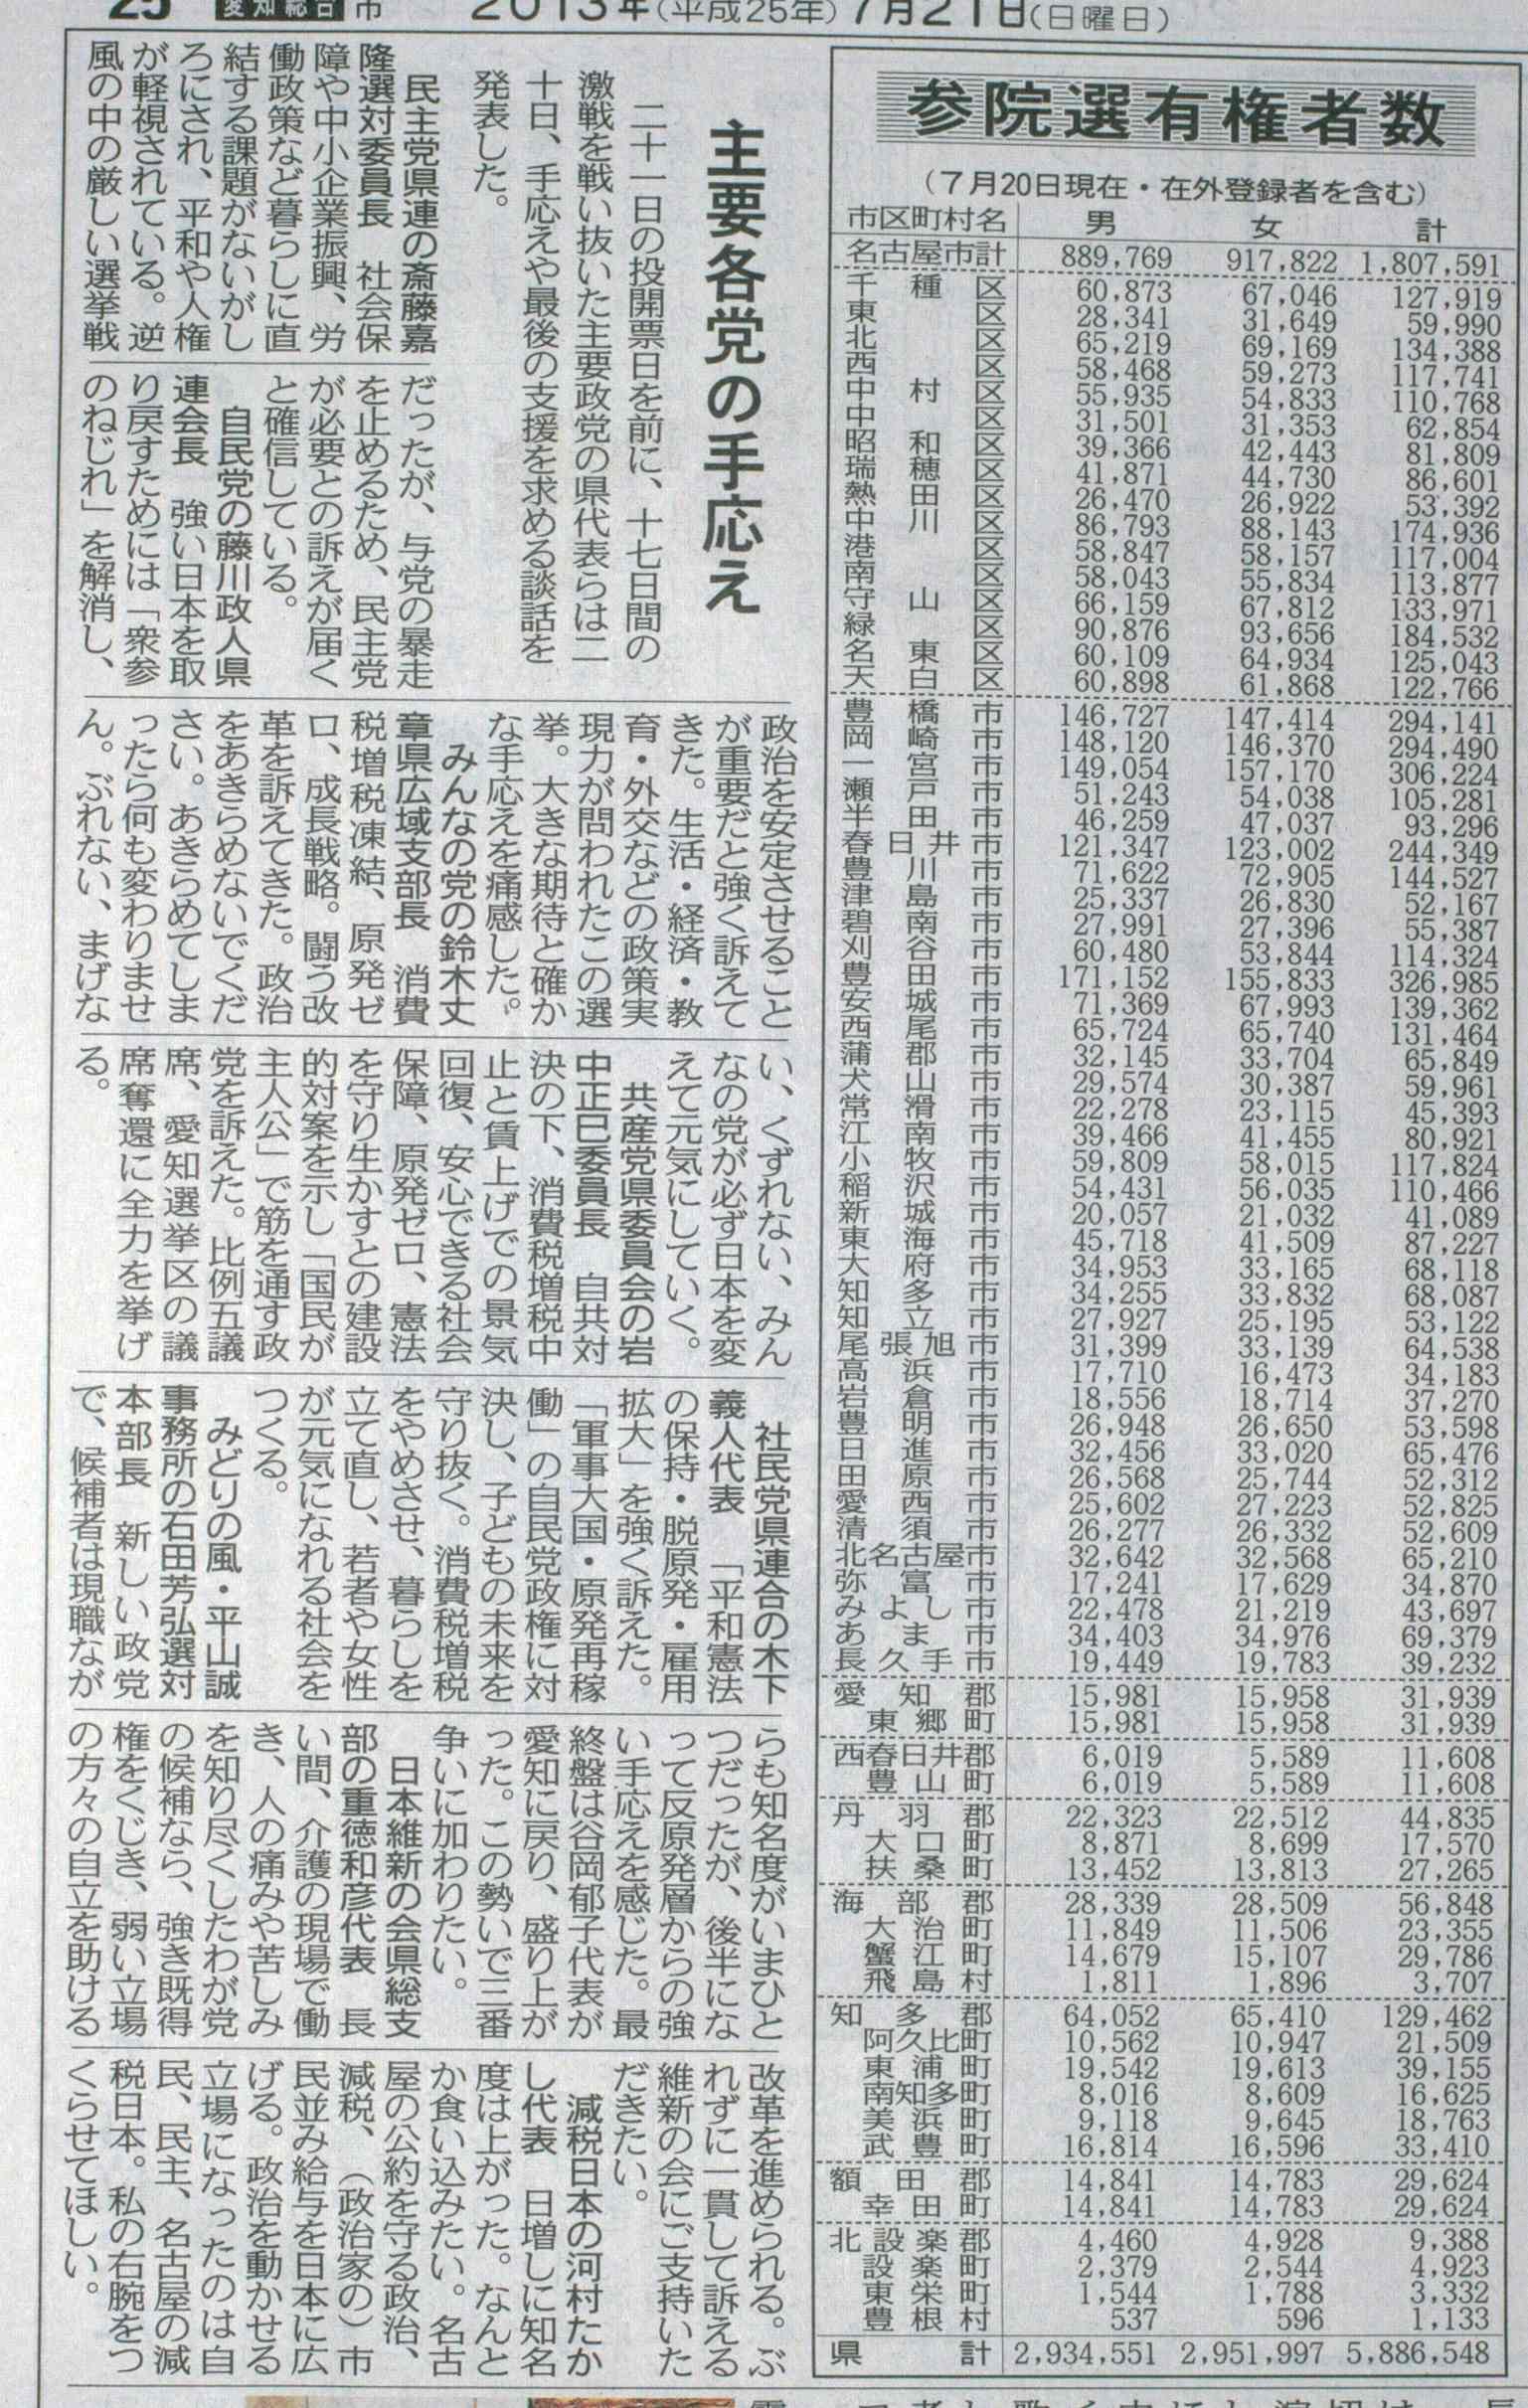 25 愛知総合 市 2013年(平成25年)7月21日(日曜日)
参院選有権者数
(7月20日現在・在外登録者を含む)
市区町村名 男 女 計
名古屋市計 889,769 917,822 1,807,591
千種区 60,873 67,046 127,919
東区 28,341 31,649 59,990
北区 65,219 69,169 134,388
西区 58,468 59,273 117,741
中村区 55,935 54,833 110,768
中区 31,501 31,353 62,854
昭和区 39,366 42,443 81,809
瑞穂区 41,871 44,730 86,601
熱田区 26,470 26,922 53,392
中川区 86,793 88,143 174,936
港区 58,847 58,157 117,004
南区 58,043 55,834 113,877
守山区 66,159 67,812 133,971
緑区 90,876 93,656 184,532
名東区 60,109 64,934 125,043
天白区 60,898 61,868 122,766
豊橋市 146,727 147,414 294,141
岡崎市 148,120 146,370 294,490
一宮市 149,054 157,170 306,224
瀬戸市 51,243 54,038 105,281
半田市 46,259 47,037 93,296
春日井市 121,347 123,002 244,349
豊川市 71,622 72,905 144,527
津島市 25,337 26,830 52,167
碧南市 27,991 27,396 55,387
刈谷市 60,480 53,844 114,324
豊田市 171,152 155,833 326,985
安城市 71,369 67,993 139,362
西尾市 65,724 65,740 131,464
蒲郡市 32,145 33,704 65,849
犬山市 29,574 30,387 59,961
常滑市 22,278 23,115 45,393
江南市 39,466 41,455 80,921
小牧市 59,809 58,015 117,824
稲沢市 54,431 56,035 110,466
新城市 20,057 21,032 41,089
東海市 45,718 41,509 87,227
大府市 34,953 33,165 68,118
知多市 34,255 33,832 68,087
知立市 27,927 25,195 53,122
尾張旭市 31,399 33,139 64,538
高浜市 17,710 16,473 34,183
岩倉市 18,556 18,714 37,270
豊明市 26,948 26,650 53,598
日進市 32,456 33,020 65,476
田原市 26,568 25,744 52,312
愛西市 25,602 27,223 52,825
清須市 26,277 26,332 52,609
北名古屋市 32,642 32,568 65,210
弥富市 17,241 17,629 34,870
みよし市 22,478 21,219 43,697
あま市 34,403 34,976 69,379
長久手市 19,449 19,783 39,232
愛知郡 15,981 15,958 31,939
東郷町 15,981 15,958 31,939
西春日井郡 6,019 5,589 11,608
豊山町 6,019 5,589 11,608
丹羽郡 22,323 22,512 44,835
大口町 8,871 8,699 17,570
扶桑町 13,452 13,813 27,265
海部郡 28,339 28,509 56,848
大治町 11,849 11,506 23,355
蟹江町 14,679 15,107 29,786
飛島村 1,811 1,896 3,707
知多郡 64,052 65,410 129,462
阿久比町 10,562 10,947 21,509
東浦町 19,542 19,613 39,155
南知多町 8,016 8,609 16,625
美浜町 9,118 9,645 18,763
武豊町 16,814 16,596 33,410
額田郡 14,841 14,783 29,624
幸田町 14,841 14,783 29,624
北設楽郡 4,460 4,928 9,388
設楽町 2,379 2,544 4,923
東栄町 1,544 1,788 3,332
豊根村 537 596 1,133
県計 2,934,551 2,951,997 5,886,548
主要各党の手応え
二十一日の投開票日を前に、十七日間の
激戦を戦い抜いた主要政党の県代表らは二
十日、手応えや最後の支援を求める談話を
発表した。
民主党県連の斎藤嘉
隆選対委員長 社会保
障や中小企業振興、労
働政策など暮らしに直
結する課題がないがし
ろにされ、平和や人権
が軽視されている。逆
風の中の厳しい選挙戦
だったが、与党の暴走
を止めるため、民主党
が必要との訴えが届く
と確信している。
自民党の藤川政人県
連会長 強い日本を取
り戻すためには「衆参
のねじれ」を解消し、
政治を安定させること
が重要だと強く訴えて
きた。生活・経済・教
育・外交などの政策実
現力が問われたこの選
挙。大きな期待と確か
な手応えを痛感した。
みんなの党の鈴木丈
章県広域支部長 消費
税増税凍結、原発ゼ
ロ、成長戦略。闘う改
革を訴えてきた。政治
をあきらめないでくだ
さい。あきらめてしま
ったら何も変わりませ
ん。ぶれない、まげな
い、くずれない、みん
なの党が必ず日本を変
えて元気にしていく。
共産党県委員会の岩
中正巳委員長 自共対
決の下、消費税増税中
止と賃上げでの景気
回復、安心できる社会
保障、原発ゼロ、憲法
を守り生かすとの建設
的対案を示し「国民が
主人公」で筋を通す政
党を訴えた。比例五議
席、愛知選挙区の議
席奪還に全力を挙げ
る。
社民党県連合の木下
義人代表 「平和憲法
の保持・脱原発・雇用
拡大」を強く訴えた。
「軍事大国・原発再稼
働」の自民党政権に対
決し、子どもの未来を
守り抜く。消費税増税
をやめさせ、暮らしを
立て直し、若者や女性
が元気になれる社会を
つくる。
みどりの風・平山誠
事務所の石田芳弘選対
本部長 新しい政党
で、候補者は現職なが
らも知名度がいまひと
つだったが、後半にな
って反原発層からの強
い手応えを感じた。最
終盤は谷岡郁子代表が
愛知に戻り、盛り上が
った。この勢いで三番
争いに加わりたい。
日本維新の会県総支
部の重徳和彦代表 長
い間、介護の現場で働
き、人の痛みや苦しみ
を知り尽くしたわが党
の候補なら、強き既得
権をくじき、弱い立場
の方々の自立を助ける
改革を進められる。ぶ
れずに一貫して訴える
維新の会にご支持いた
だきたい。
減税日本の河村たか
し代表 日増しに知名
度は上がった。なんと
か食い込みたい。名古
屋の公約を守る政治、
減税、(政治家の)市
民並み給与を日本に広
げる。政治を動かせる
立場になったのは自
民、民主、名古屋の減
税日本。私の右腕をつ
くらせてほしい。